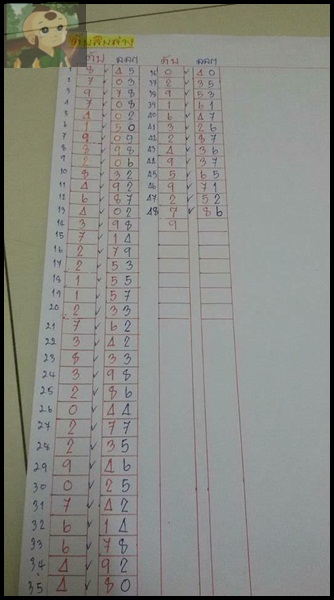 ดับสิบล่าง
ดับ ผลฯ ดับ ผลฯ
1 8 ✓ 45 36 0 ✓ 40
2 7 ✓ 03 37 2 ✓ 35
3 9 ✓ 78 38 9 ✓ 53
4 7 ✓ 08 39 1 ✓ 61
5 4 ✓ 02 40 6 ✓ 47
6 1 ✓ 50 41 3 ✓ 26
7 9 ✓ 09 42 2 ✓ 87
8 3 ✓ 98 43 4 ✓ 36
9 2 ✓ 06 44 9 ✓ 37
10 8 ✓ 32 45 5 ✓ 65
11 4 ✓ 92 46 9 ✓ 71
12 6 ✓ 87 47 2 ✓ 52
13 4 ✓ 02 48 7 ✓ 86
14 3 ✓ 98 9
15 7 ✓ 14
16 2 ✓ 79
17 2 ✓ 53
18 1 ✓ 55
19 1 ✓ 57
20 2 ✓ 33
21 7 ✓ 62
22 3 ✓ 42
23 8 ✓ 33
24 3 ✓ 98
25 2 ✓ 86
26 0 ✓ 44
27 2 ✓ 77
28 2 ✓ 35
29 9 ✓ 46
30 0 ✓ 25
31 7 ✓ 42
32 6 ✓ 14
33 6 ✓ 78
34 4 ✓ 92
35 4 ✓ 80